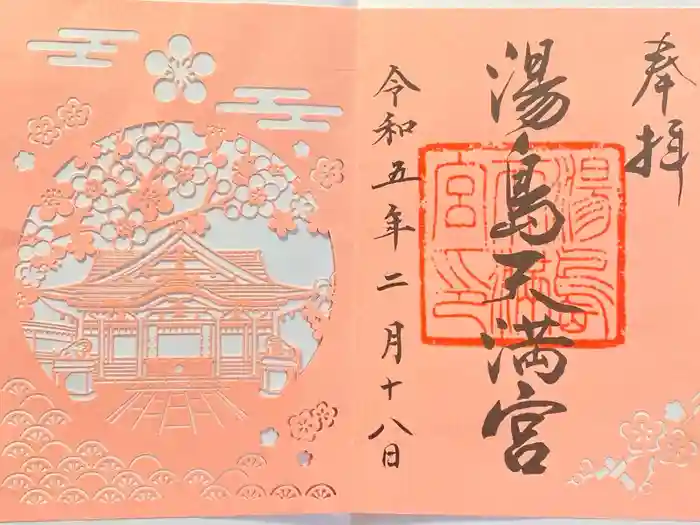 奉拝
湯島天満宮
湯島天満宮印
令和五年二月十八日